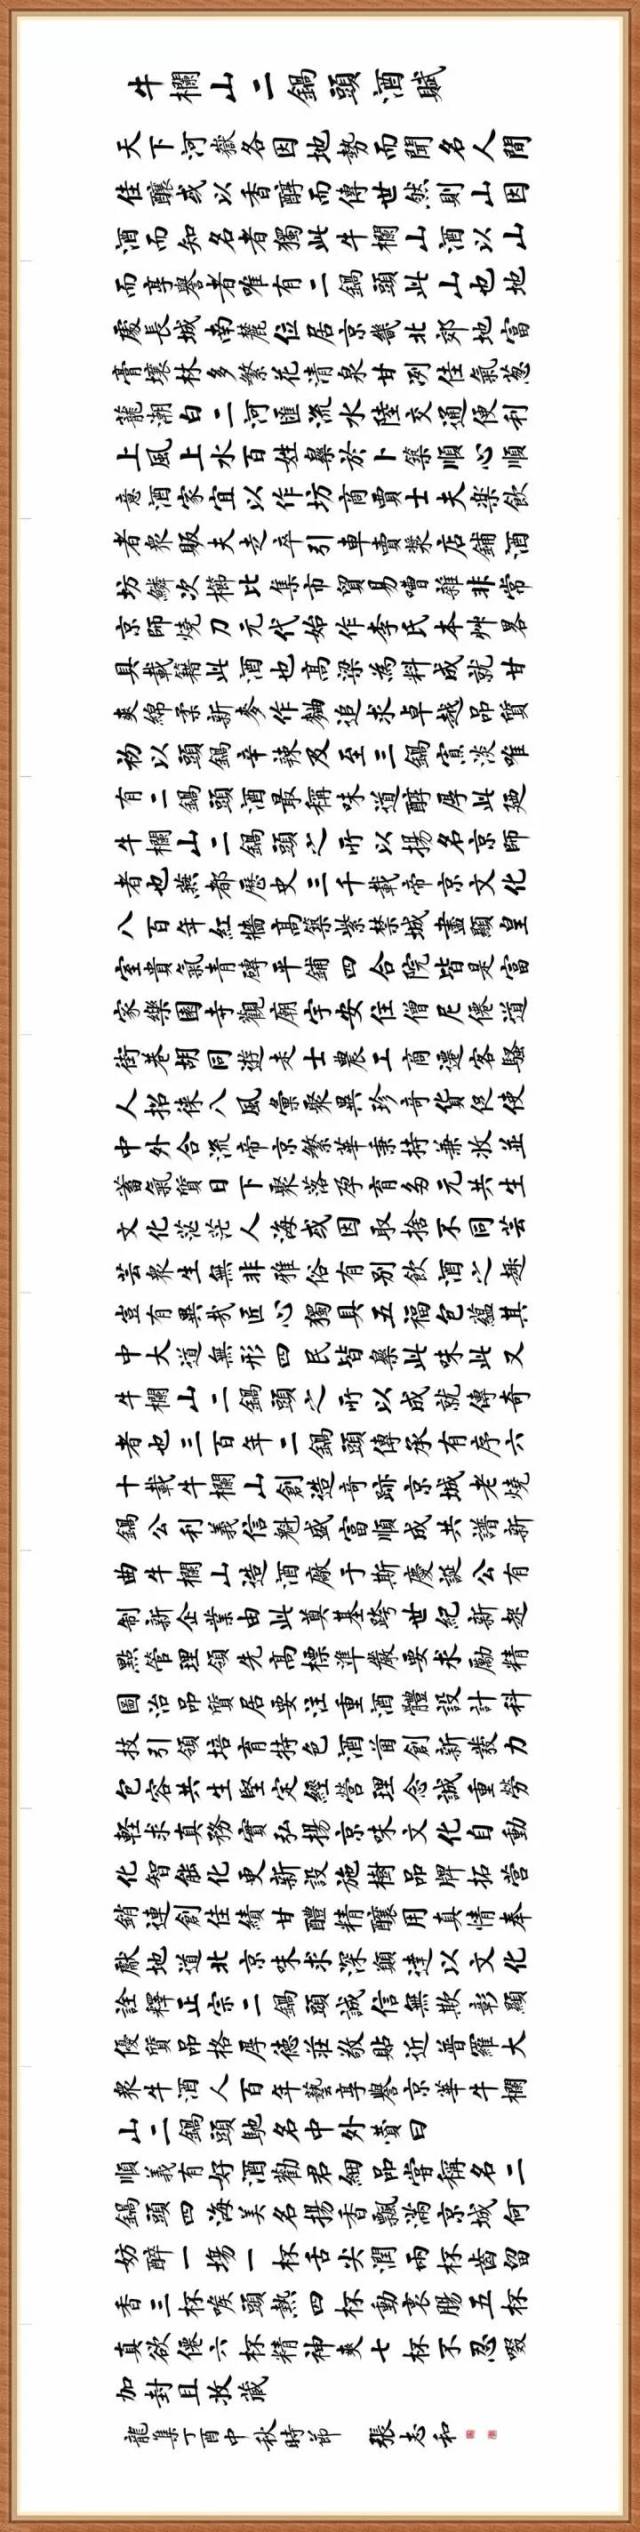 牛欄山二鍋頭酒賦
天下河嶽各因地勢而聞名人間
佳釀或以香醇而傳世然則山因
酒而知名者獨此牛欄山酒以山
而享譽者唯有二鍋頭此山也地
處長城南麓位居京畿北郊地富
膏壤林多繁花清泉甘冽佳氣蔥
蘢潮白二河匯流水陸交通便利
上風上水百姓樂於卜築順心順
意酒家宜以作坊商賈士夫樂飲
者衆販夫走卒引車賣漿店鋪酒
坊鱗次櫛比集市貿易嘈雜非常
京師燒刀元代始作李氏本艸畧
具載籍此酒也高粱為料成就甘
爽綿柔新麥作麯追求卓越品質
初以頭鍋辛辣及至三鍋寡淡唯
有二鍋頭酒最稱味道醇厚此廼
牛欄山二鍋頭之所以揚名京師
者也燕都歷史三千載帝京文化
八百年紅牆高築紫禁城盡顯皇
室貴氣青磚平鋪四合院皆是富
家樂園寺觀廟宇安住僧尼僊道
街巷胡同遊走士農工商遷客騷
人招徠八風彙聚異珍奇貨促使
中外合流帝京繁華秉持兼收並
蓄氣質日下聚落孕育多元共生
文化茫茫人海或因取捨不同芸
芸衆生無非雅俗有别飲酒之趣
豈有異哉匠心獨具五福包蘊其
中大道無形四民皆樂此味此又
牛欄山二鍋頭之所以成就傳奇
者也三百年二鍋頭傳承有序六
十載牛欄山創造奇跡京城老燒
鍋公利義信魁盛富順成共譜新
曲牛欄山造酒廠于斯慶誕公有
制新企業由此奠基跨世紀新起
點管理領先高標準嚴要求勵精
圖治品質居要注重酒體設計科
技引領培育特色酒苗創新發力
包容共生堅定經營理念誠重勞
輕求真務實弘揚京味文化自動
化智能化更新設施樹品牌拓營
銷連創佳績甘醴精釀用真情奉
獻地道北京味求深顛達以文化
詮釋正宗二鍋頭誠信無欺彰顯
優質品格厚德莊敬貼近普羅大
衆牛酒人百年藝享譽京華牛欄
山二鍋頭馳名中外贊曰
順義有好酒勸君細品嘗稱名二
鍋頭四海美名揚香飄滿京城何
妨醉一塲一杯舌尖潤兩杯齒留
香三杯喉頭熱四杯動衷腸五杯
真欲僊六杯精神爽七杯不忍啜
加封且收藏
龍集丁酉中秋時節 張志和